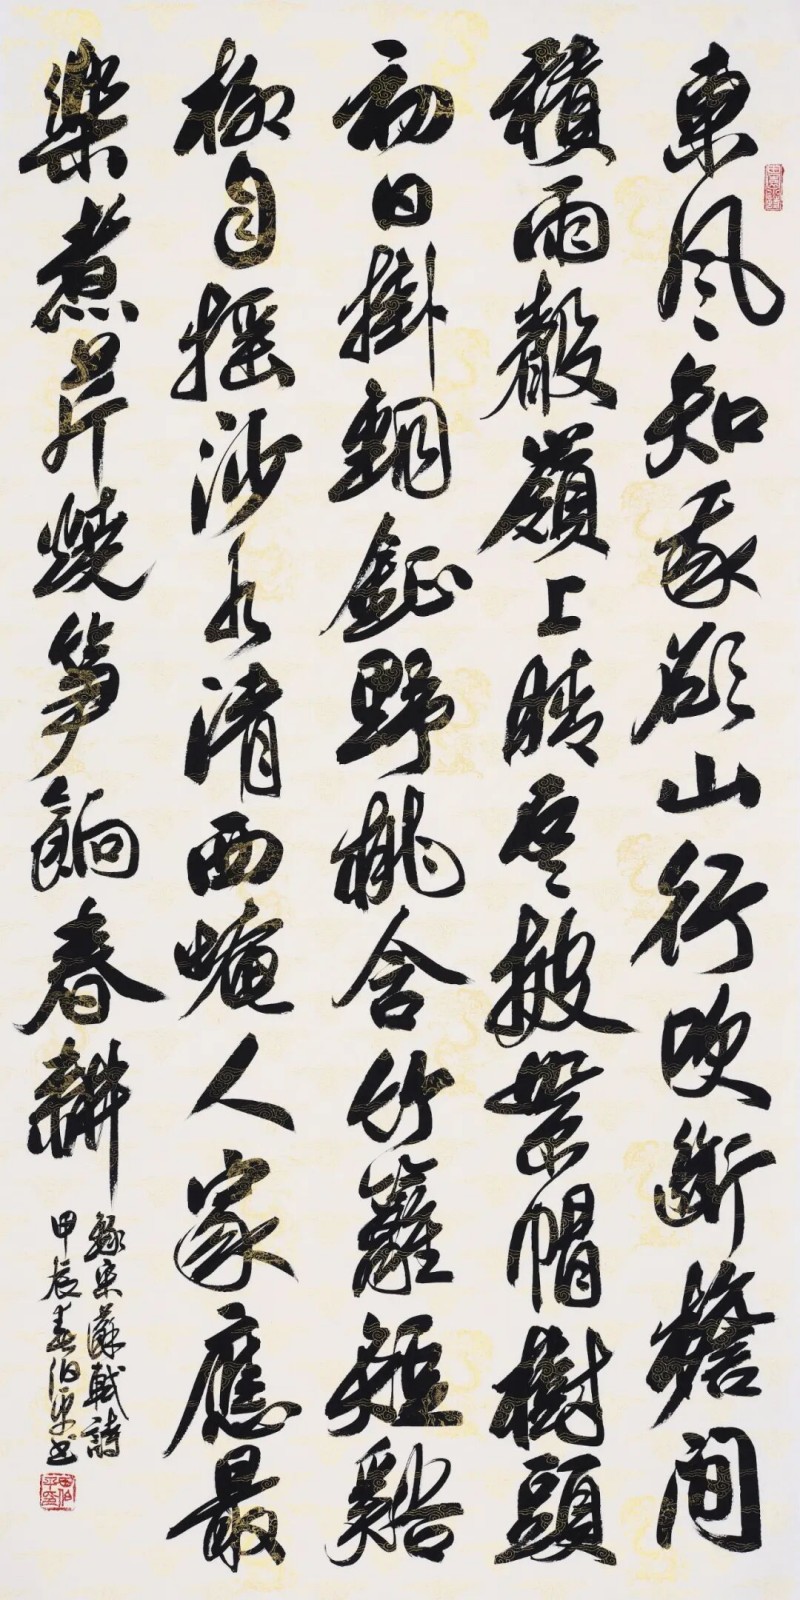 東風知我欲山行吹斷檐間
積雨聲嶺上晴雲披絮帽樹頭
初日掛銅鉦野桃含竹籬短谿
柳自搖沙水清西崦人家應最
樂煮芹燒筍餉春耕
錄宋蘇軾詩
甲辰春伯平書